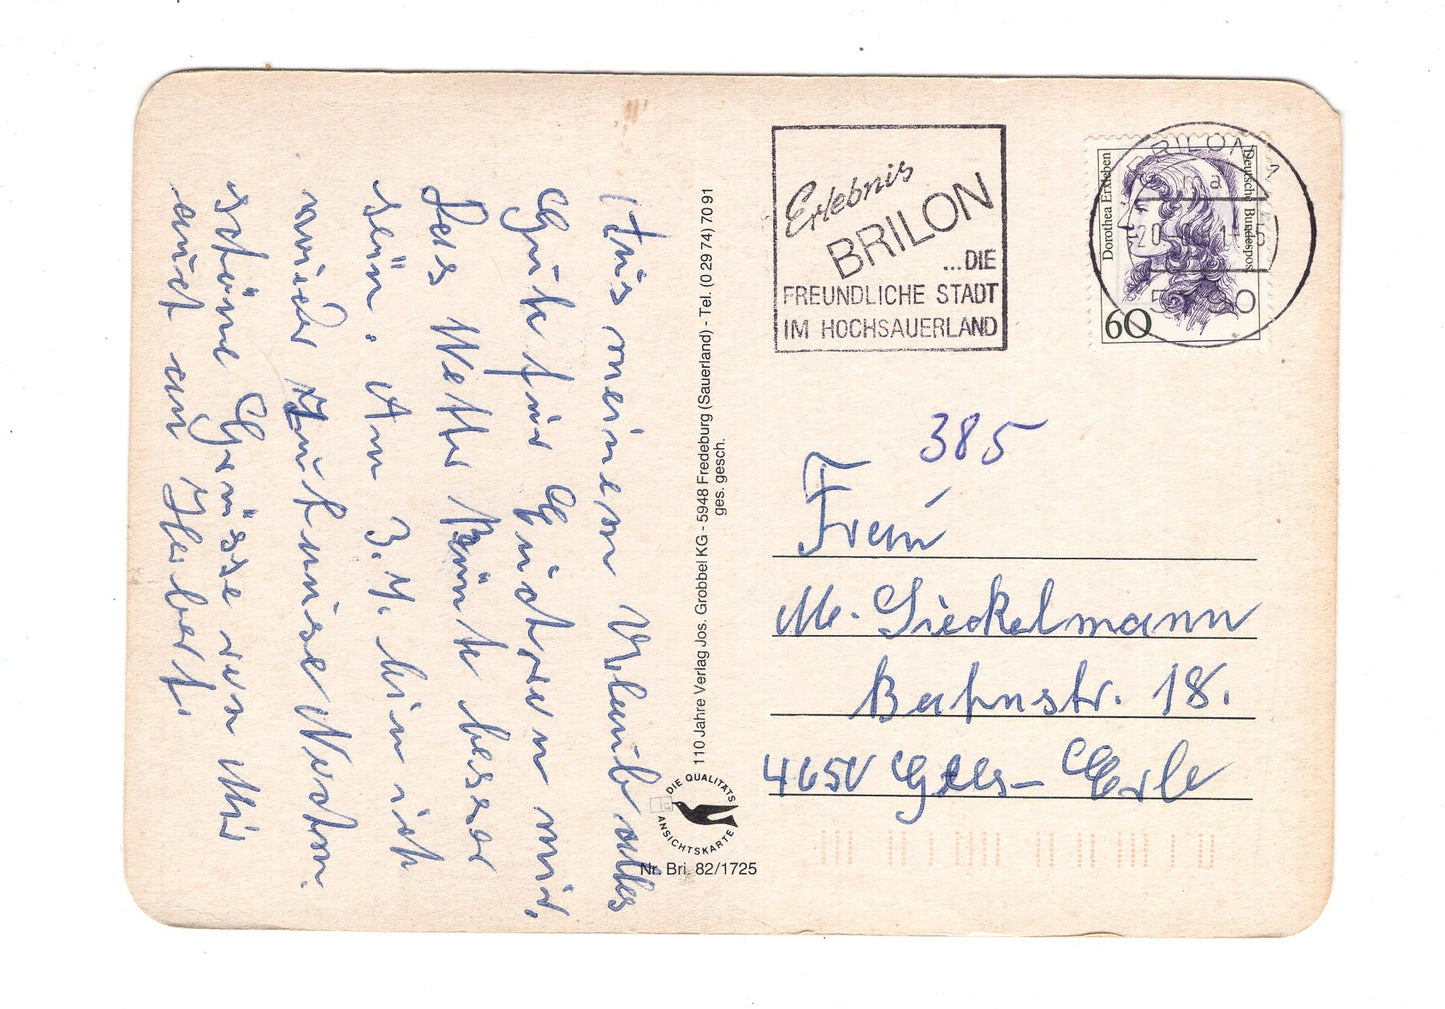 Aus meinem Urlaub alles
Gute für
mir,
Das Wetter könnte besser
sein. Am 3.4. bin ich
wieder zu Hause
schöne Grüsse von
auch an Herbert.
110 Jahre Verlag Jos. Grobbel KG - 5948 Fredeburg (Sauerland) - Tel. (0 29 74) 70 91
ges. gesch.
DIE QUALITÄTS
ANSICHTSKARTE
Nr. Bri. 82/1725
Erlebnis
BRILON
...DIE
FREUNDLICHE STADT
IM HOCHSAUERLAND
Dorothea Erxleben
Deutsche Bundespost
60
BRILON 1
385
Frau
M. Sieckelmann
Bahnstr. 18.
4650 Gels-Erle